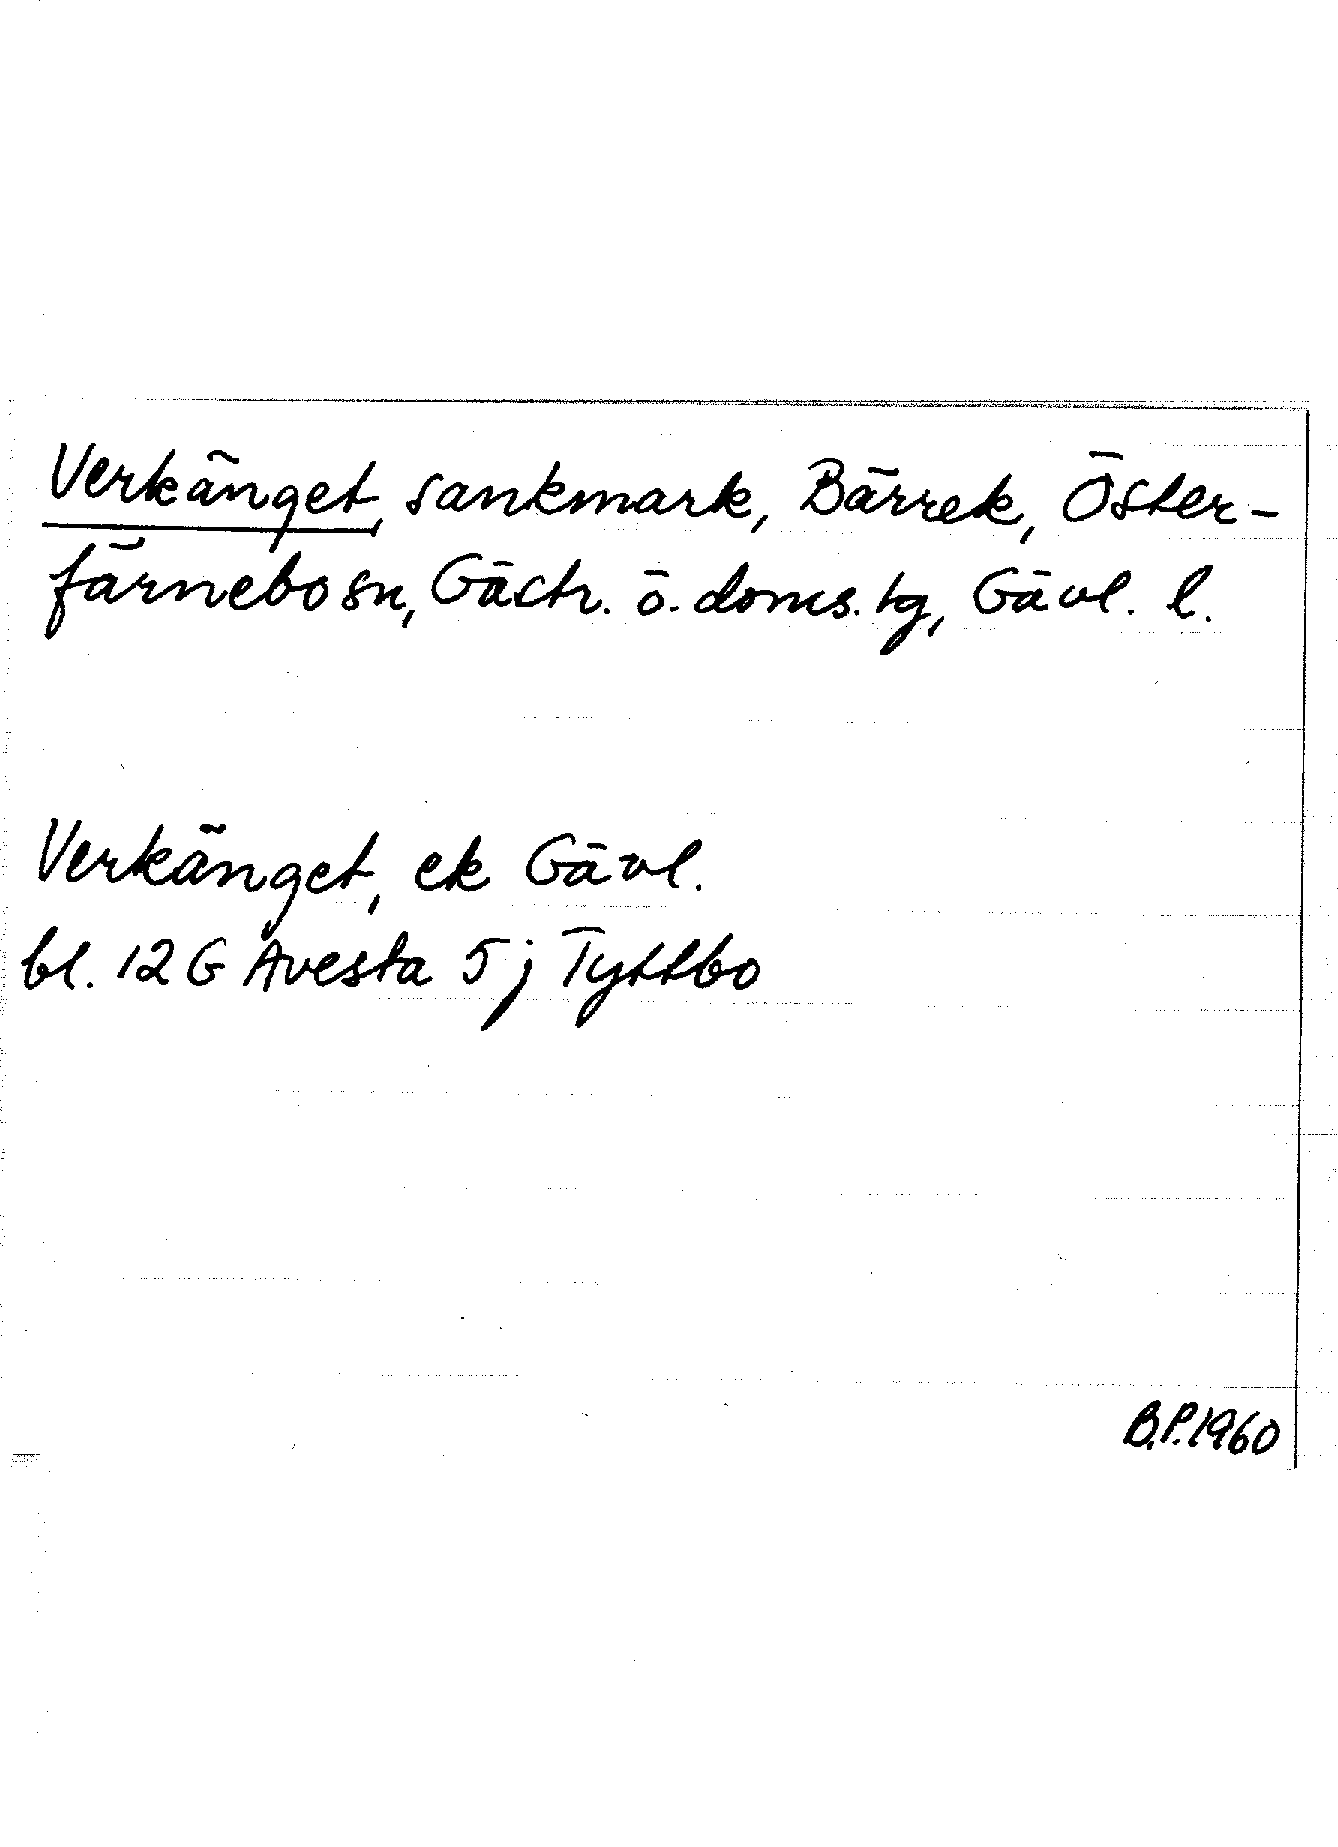 Verkänget, sankmark, Bärrek, Öster-
färnebo sn, Gästr. ö. doms. tg, Gävl. l.
Verkänget, ek Gävl.
bl. 12 G Avesta 5 j Tyttbo
B.P. 1960